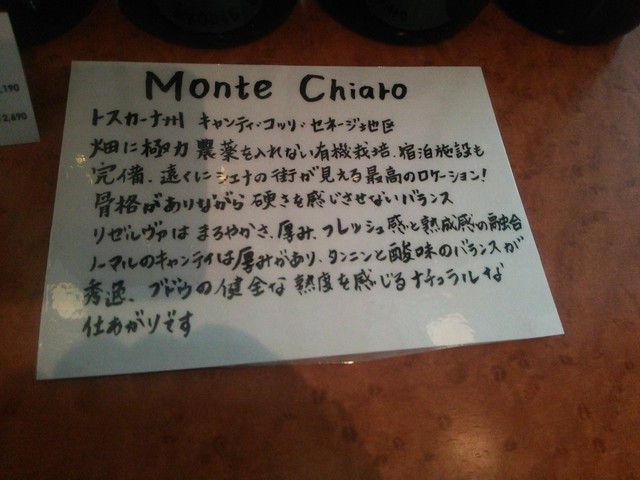 ,190
2,690
Monte Chiaro
トスカーナ州 キャンティ・コッリ・セネージ地区
畑に極力 農薬を入れない有機栽培、宿泊施設も
完備、遠くにシェナの街が見える最高のロケーション!
骨格がありながら 硬さを感じさせないバランス
リゼルヴァは まろやかさ、厚み、フレッシュ感と熟成感の融合
ノーマルのキャンティは厚みがあり、タンニンと酸味のバランスが
秀逸、ブドウの健全な熟度を感じるナチュラルな
仕あがりです